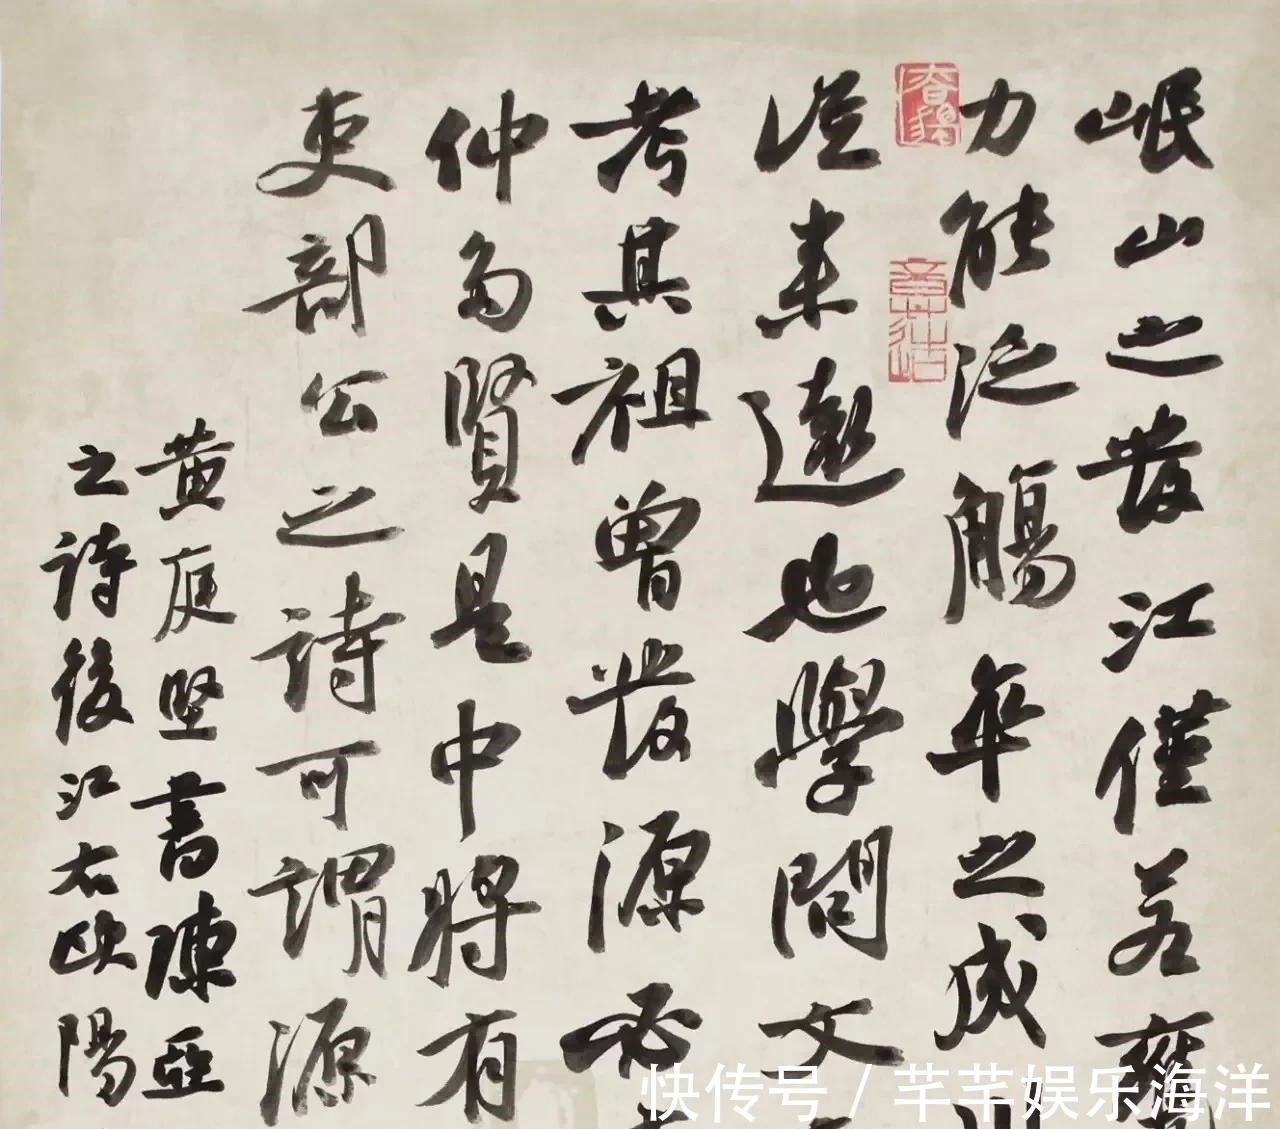 岷山之發江僅若甕
力能泛觴卒之成川
從來遠也學問文
考其祖曾發源必
仲多賢是中將有
吏部公之詩可謂源
黄庭堅書陳亞
之詩後江右歐陽
快传号/芊芊娱乐海洋